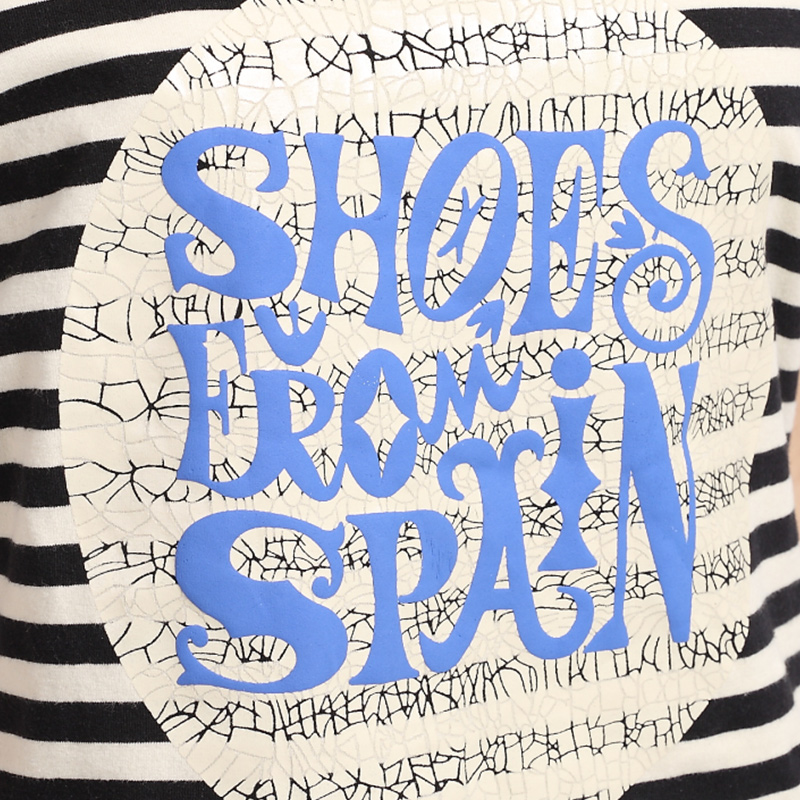 SHOES
FROM
SPAiN